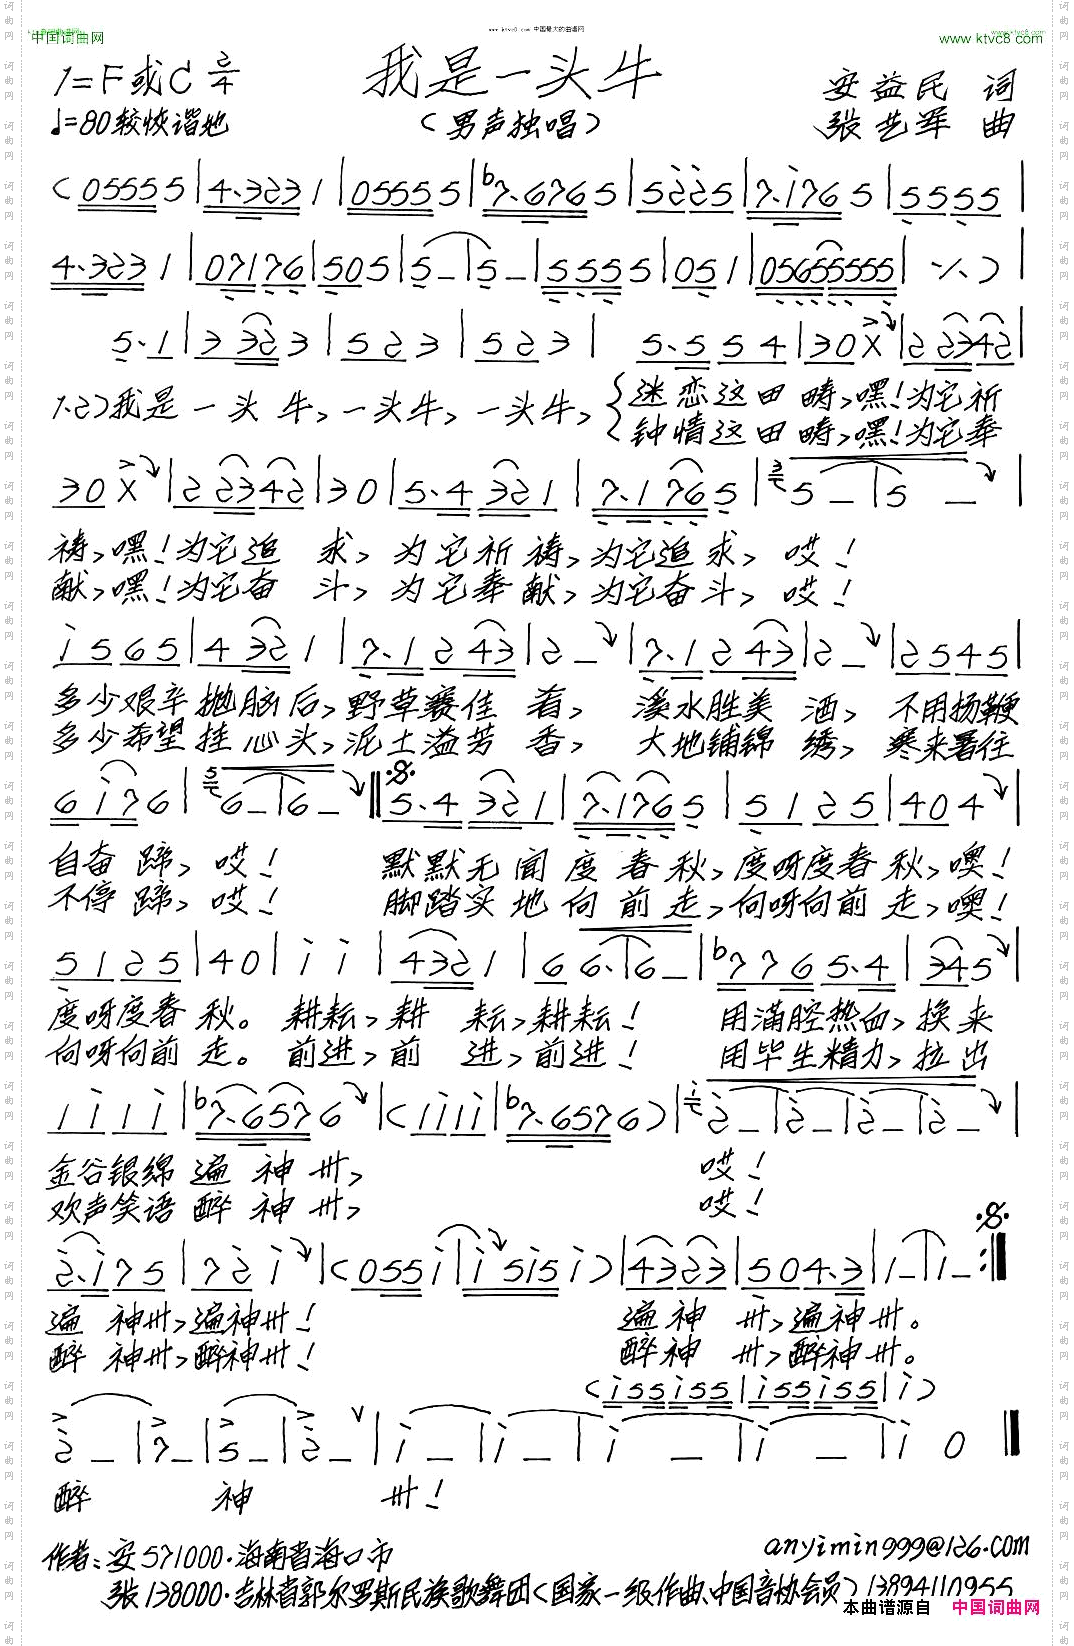 www.ktvc8.com 中国最大的曲谱网
中国词曲网
www.ktvc8.com
1=F或C
我是一头牛
安益民 词
♩=80 较快 谐地
（男声独唱）
张艺军 曲
(05555|4·3231|05555|♭7·6765|5225|7·1765|5555|
4·3231|07176|505|5–|5–|5555|051|05655555|·/·)|
5·1|3323|523|523|5·554|30X|22342|
1.2)我是一头牛,一头牛,一头牛,{迷恋这田畴,嘿!为它祈
钟情这田畴,嘿!为它奉
30X|22342|30|5·4321|7·1765|5–|5–|
祷,嘿!为它追求,为它祈祷,为它追求,哎!
献,嘿!为它奋斗,为它奉献,为它奋斗,哎!
1565|4321|7·1243|2–|7·1243|2–|2545|
多少艰辛抛脑后,野草赛佳肴,溪水胜美酒,不用扬鞭
多少希望挂心头,泥土溢芳香,大地铺锦绣,寒来暑往
6176|6–|6–‖5·4321|7·1765|5125|404|
自奋蹄,哎!默默无闻度春秋,度呀度春秋,噢!
不停蹄,哎!脚踏实地向前走,向呀向前走,噢!
5125|40|11|4321|66·|6–|♭7765·4|345|
度呀度春秋。耕耘,耕耘,耕耘!用满腔热血,换来
向呀向前走。前进,前进,前进!用毕生精力,拉出
1111|♭7·6576|(1111|♭7·6576)|2–|2–|2–|2–|
金谷银绵遍神州,哎!
欢声笑语醉神州,哎!
2·175|721|(0551|15151)|4323|504·3|1–|1–:‖
遍神州,遍神州!遍神州,遍神州。
醉神州,醉神州!醉神州,醉神州。
(155155|155155|1)
2–|7–|5–|2–|1–|1–|1–|1–|10‖
醉神州!
作者:安571000·海南省海口市
anyimin999@126.com
张138000·吉林省郭尔罗斯民族歌舞团(国家一级作曲、中国音协会员)13894110955
本曲谱源自 中国词曲网